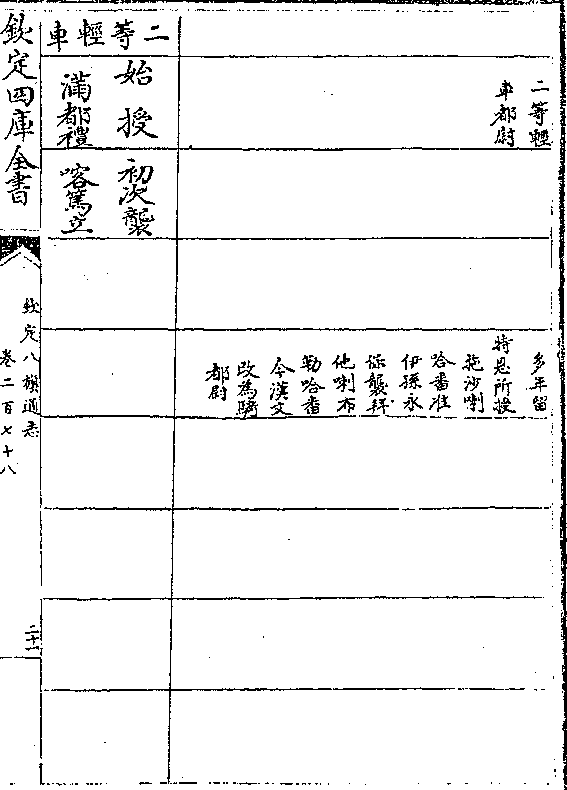 二等輕
車都尉
多年留
特恩所授
拖沙喇
哈番准
伊孫永
保襲拜
他喇布
勒哈番
今漢文
改為騎
都尉
二等輕車
始授
滿都禮
初次襲
喀篤立
欽定四庫全書
欽定八旗通志
卷二百七十八
二十一